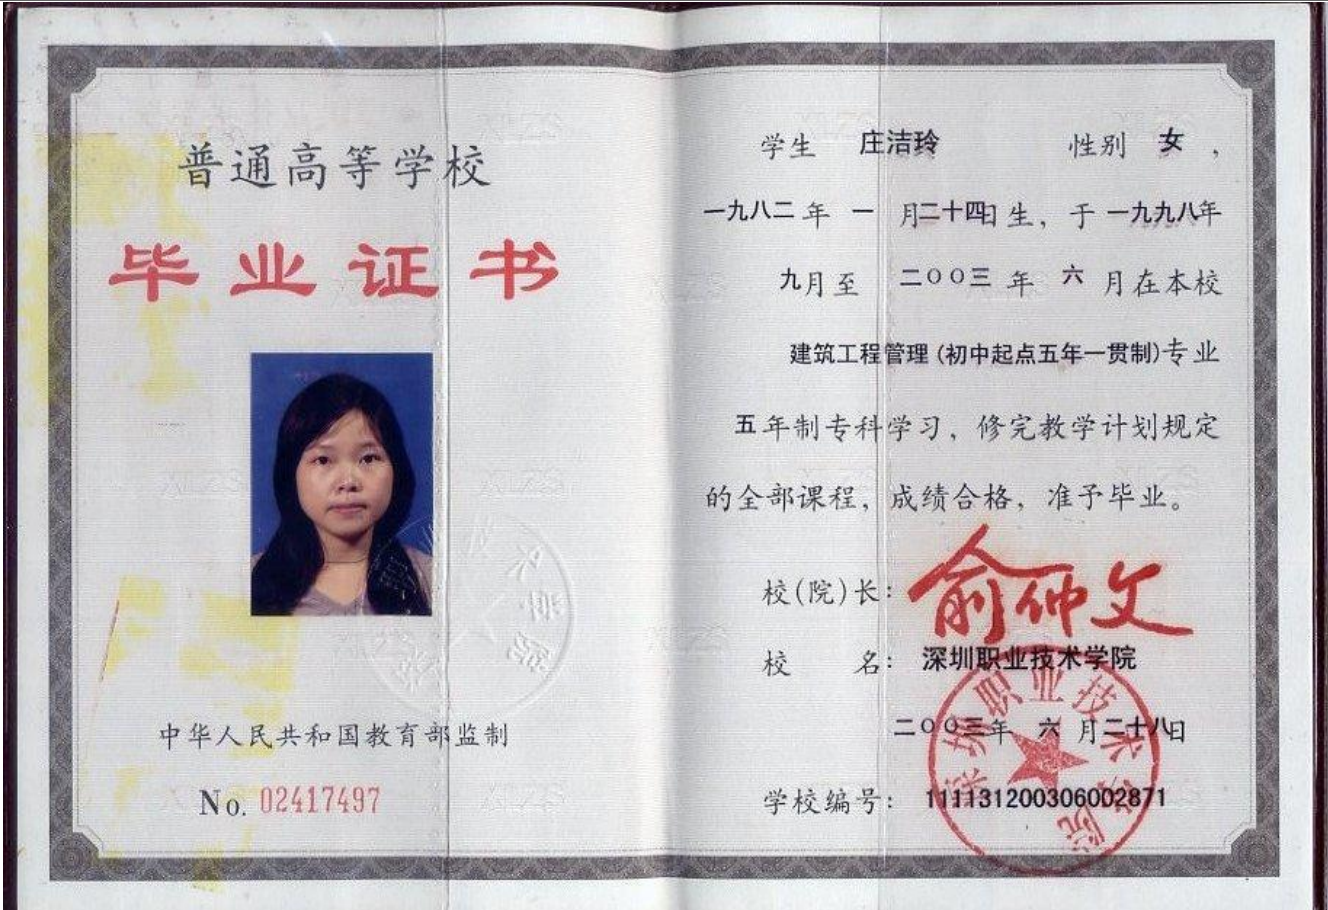 普通高等学校
毕业证书
中华人民共和国教育部监制
No. 02417497
学生 庄洁玲 性别 女，
一九八二年 一 月二十四日生，于一九九八年
九月至 二〇〇三年 六 月在本校
建筑工程管理(初中起点五年一贯制)专业
五年制专科学习，修完教学计划规定
的全部课程，成绩合格，准予毕业。
校(院)长： 俞仲文
校 名： 深圳职业技术学院
二〇〇三年 六 月二十八日
学校编号： 111131200306002871
深圳职业技术学院